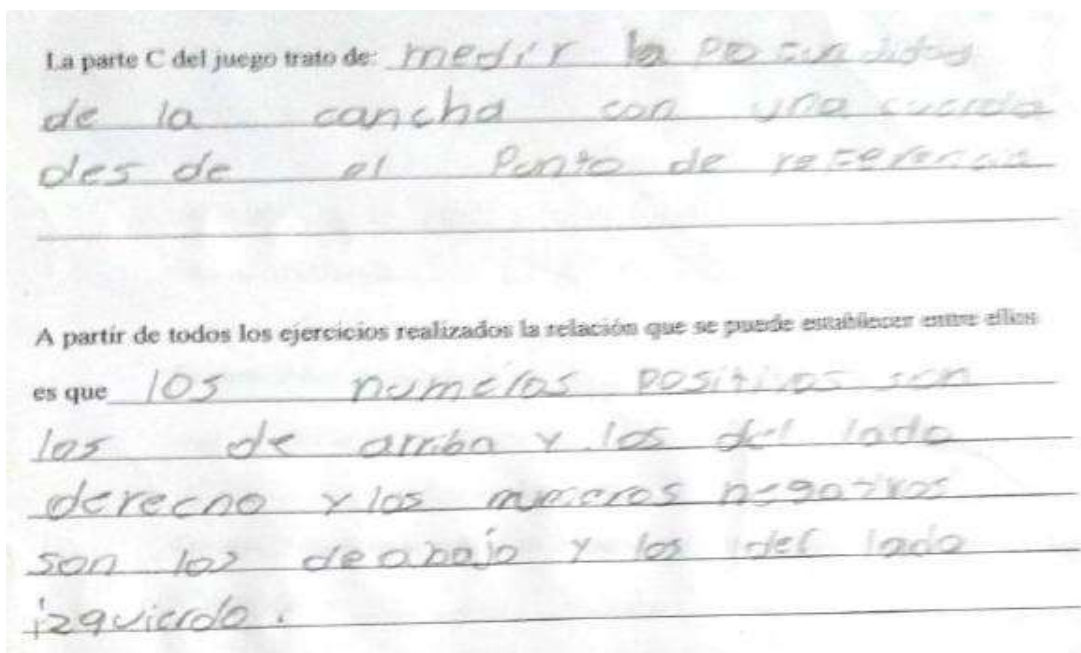 La parte C del juego trato de: medir la profundidad
de la cancha con una cuerda
des de el Punto de referencia
A partir de todos los ejercicios realizados la relación que se puede establecer entre ellos
es que los numeros positivos son
los de arriba y los del lado
derecho y los numeros negativos
son los de abajo y los del lado
izquierdo.